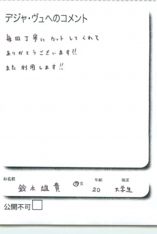 デジャ・ヴュへのコメント
毎回丁寧に カット してくれて
ありがとうございます!!
また 利用します!!
お名前 年齢 職業
鈴木 雄貴 20 大学生
公開不可